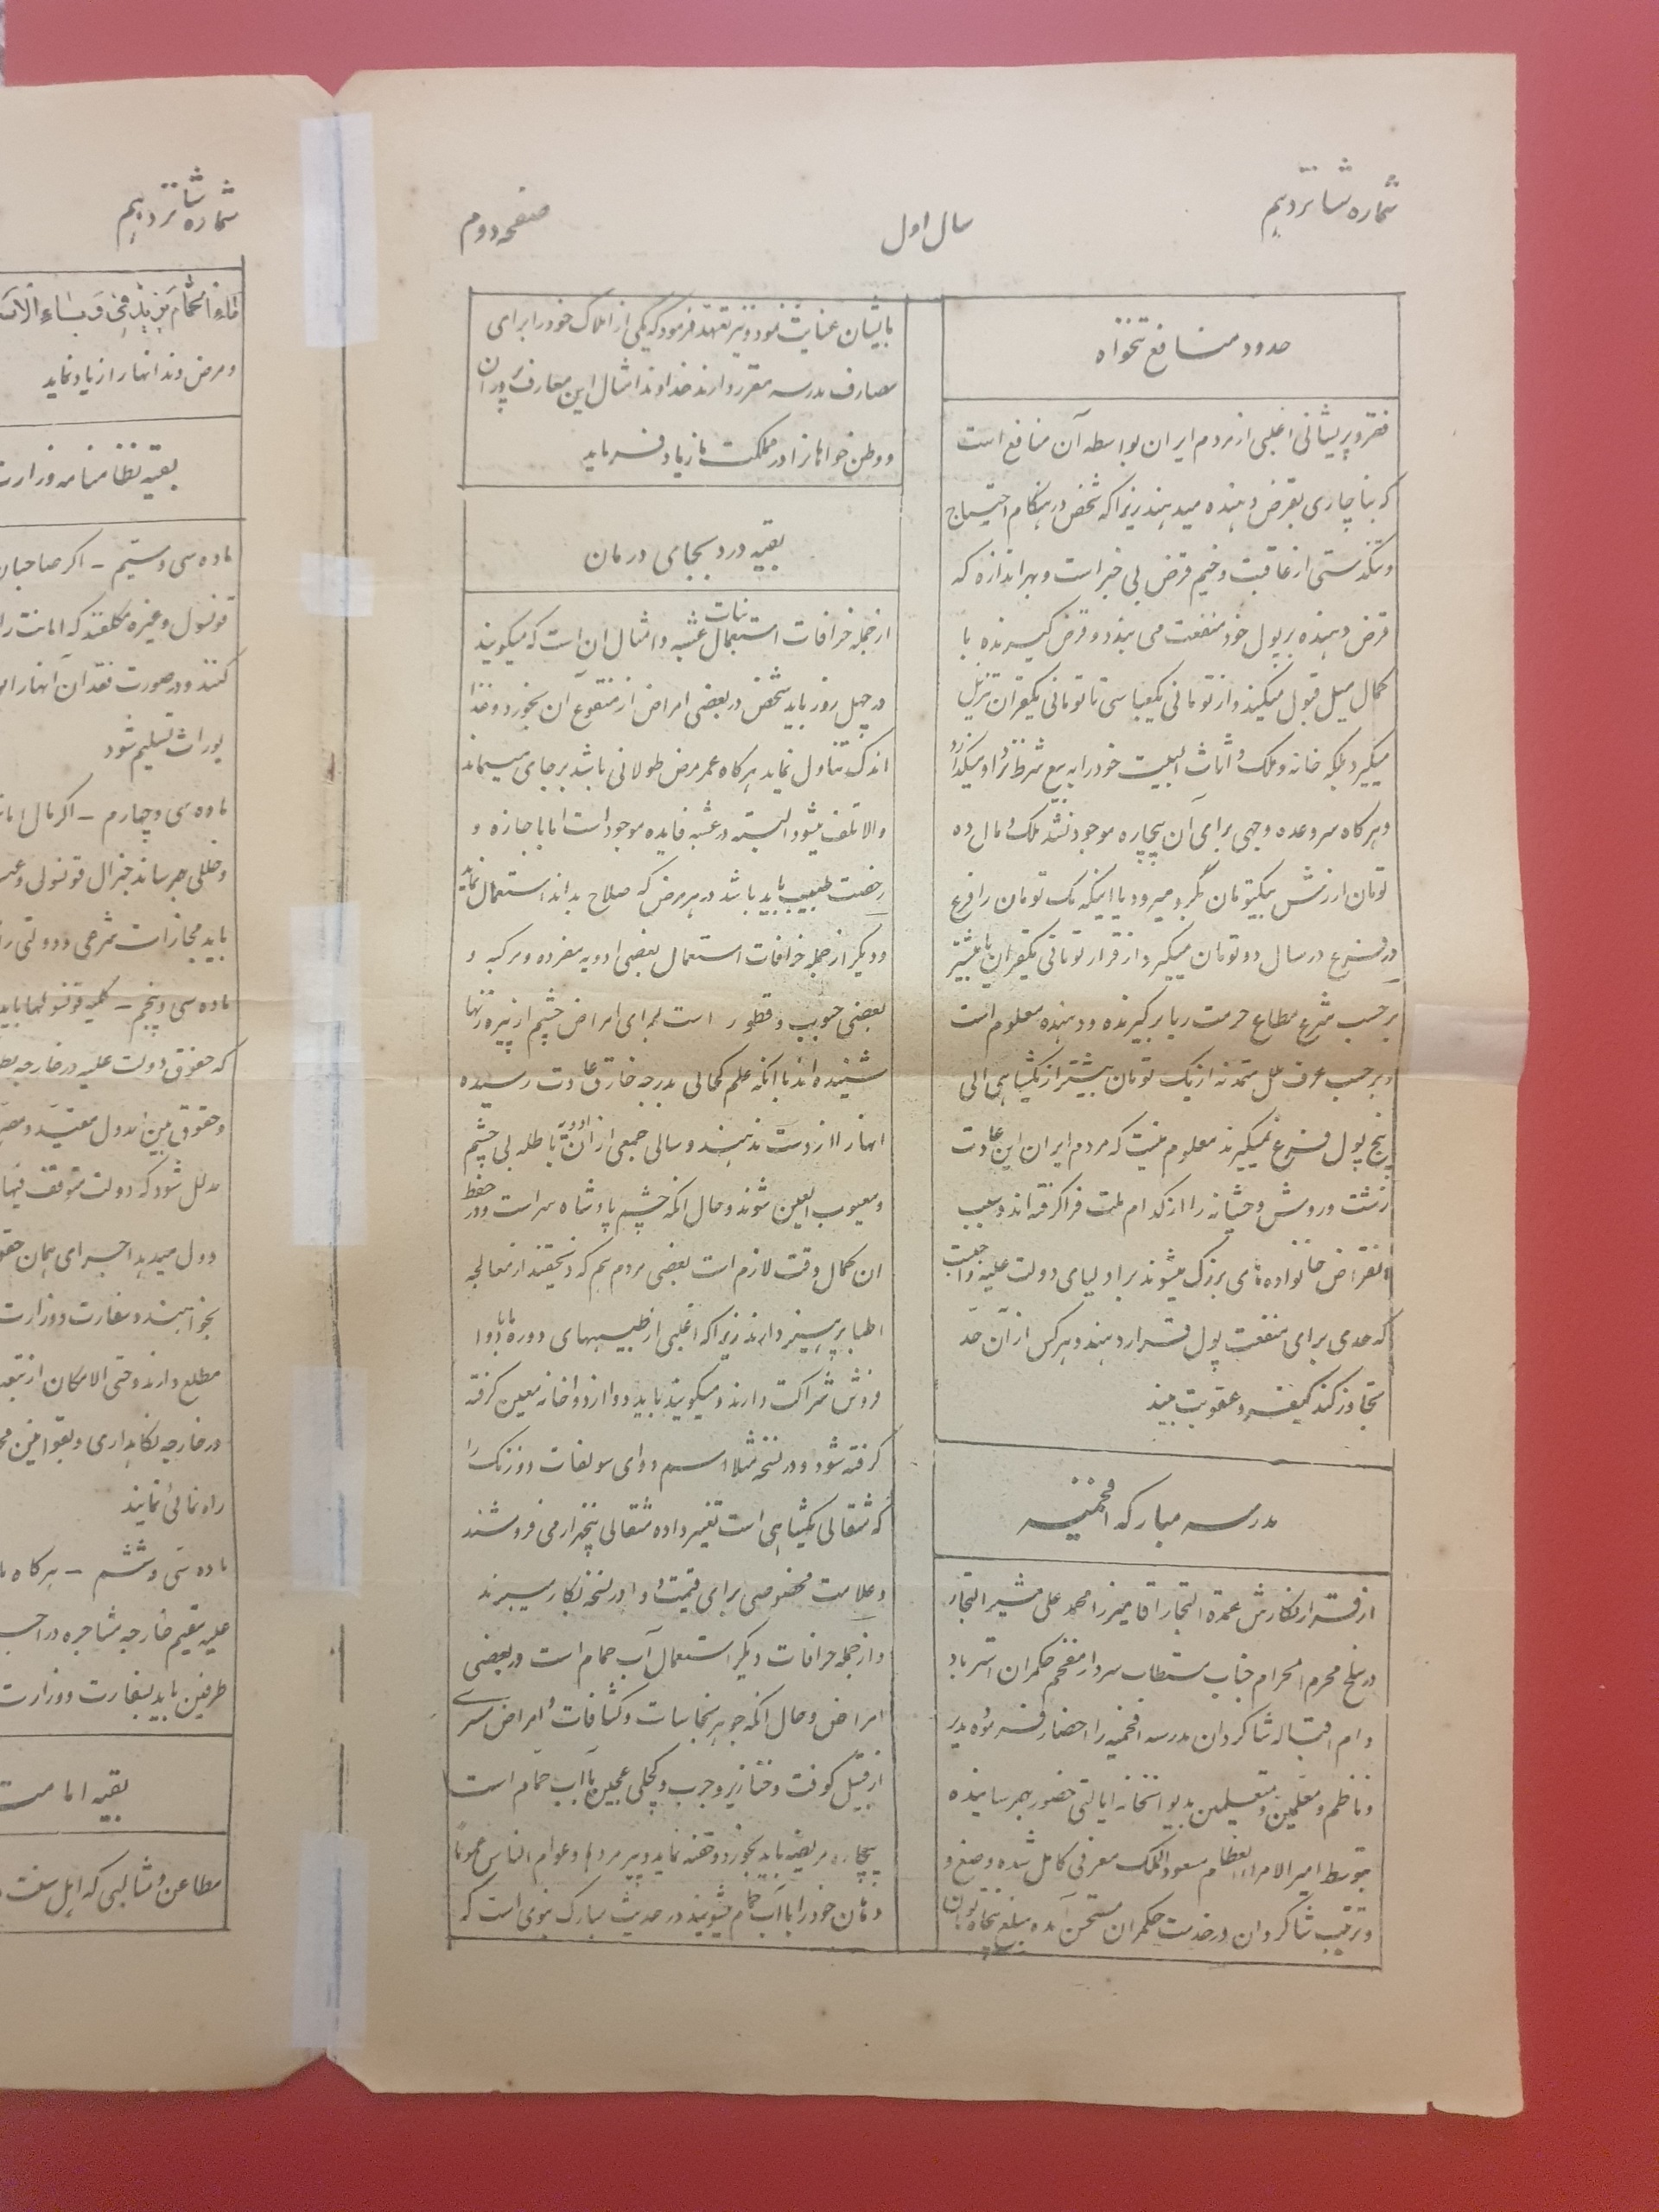 شماره شانزدهم
سال اول
صفحه دوم
حدود منافع تنخواه
فقر و پریشانی اغلبی از مردم ایران بواسطه آن منافع است
که بناچاری بقرض دهنده میدهند زیرا که شخص در هنگام احتیاج
و تنگدستی از عاقبت وخیم قرض بی خبر است و بهر اندازه که
قرض دهنده بر پول خود منفعت می بندد و قرض گیرنده با
کمال میل قبول میکند و از تومانی یکعباسی تا تومانی یکقران تنزیل
میگیرد بلکه خانه و ملک و اثاث البیت خود را به بیع شرط نزد او میگذارد
و هرگاه سر وعده وجهی برای آن بیچاره موجود نشد ملک و مال ده
تومان ارزش بیکتومان گرو میرود یا اینکه یک تومان را فرع
در فرع در سال دو تومان میگیرد از قرار تومانی یکقران یا بیشتر
بر حسب شرع مطاع حرمت ربا بر گیرنده و دهنده معلوم است
و بر حسب عرف ملل متمدنه از یک تومان بیشتر از یکشاهی الی
پنج پول فرع نمیگیرند معلوم نیست که مردم ایران این عادت
زشت و روش وحشیانه را از کدام ملت فرا گرفته اند و سبب
انقراض خانواده های بزرگ میشوند بر اولیای دولت علیه واجبست
که حدی برای منفعت پول قرار دهند و هر کس از آن حد
تجاوز کند کیفر و عقوبت بیند
مدرسه مبارکه افخمیه
از قرار نگارش عمدة التجار آقا میرزا محمد علی مشیر التجار
در سلخ محرم الحرام جناب مستطاب سردار مفخم حکمران استرباد
دام اقباله شاگردان مدرسه افخمیه را احضار فرموده مدیر
و ناظم و معلمین و متعلمین بدیوانخانه ایالتی حضور بهم رسانیده
بتوسط امیر الامراء العظام مسعود الملک معرفی کامل شده وضع و
و ترتیب شاگردان در خدمت حکمران مستحسن آمده مبلغ پنجاه تومان
بایشان عنایت نمود و نیز تعهد فرمود که یکی از املاک خود را برای
مصارف مدرسه مقرر دارند خداوند امثال این معارف پروران
و وطن خواهان را در مملکت ما زیاد فرماید
بقیه درد بجای درمان
از جمله خرافات استعمال نبات عشبه و امثال ان است که میگویند
در چهل روز باید شخص در بعضی امراض از منقوع آن بخورد و غذا
اندک تناول نماید هرگاه عمر مرض طولانی باشد بر جای میماند
والا تلف میشود البته در عشبه فایده موجود است اما با اجازه و
رخصت طبیب باید باشد در هر مرض که صلاح بداند استعمال نماید
و دیگر از جمله خرافات استعمال بعضی ادویه مفرده و مرکبه و
بعضی حبوب و قطور است برای امراض چشم از پیره زنها
شنیده اند با انکه علم کحالی بدرجه خارق عادت رسیده
انها را از دست ندهند و سالی جمعی از ان ادویه باطله بی چشم
و معیوب العین شوند و حال انکه چشم پادشاه سر است و در حفظ
ان کمال دقت لازم است بعضی مردم هم که ذیحقند از معالجه
اطبا پرهیز دارند زیرا که اغلبی از طبیبهای دوره ما با دوا
فروش شراکت دارند و میگویند باید دوا از دواخانه معین گرفته
گرفته شود و در نسخه مثلا اسم دوای سولفات دوزنک را
که مثقالی یکشاهی است تغییر داده مثقالی پنجهزار می فروشند
و علامت مخصوصی برای قیمت دوا در نسخه بکار میبرند
و از جمله خرافات دیگر استعمال آب حمام است در بعضی
امراض و حال انکه جوهر نجاسات و کثافات و امراض مسری
از قبیل کوفت و خنازیر و جرب و کچلی عجین با آب حمام است
بیچاره مریض باید بخورد و حقنه نماید و پیر مردها و عوام الناس عموما
دهان خود را با آب حمام میشویند در حدیث مبارک نبوی است که
شماره شانزدهم
و مرض دندانها را زیاد نماید
بقیه نظامنامه وزارت
ماده سی و سیم – اگر صاحبان
قونسول و غیره مکلفند که امانت را
کنند و در صورت فقدان آنها را
بوراث تسلیم شود
ماده سی و چهارم – اگر مال امانت
و خللی بهم رساند جنرال قونسول و
باید مجازات شرعی و دولتی
ماده سی و پنجم – کلیه قونسولها باید
که حقوق دولت علیه در خارجه
و حقوق بین الدول مقید و
مدلل شود که دولت متوقف فیها
دول میدهد اجرای همان حقوق
بخواهند و سفارت و وزارت
مطلع دارند و حتی الامکان از
در خارجه نگاهداری و بقوانین
راه نمائی نمایند
ماده سی و ششم – هرگاه
علیه مقیم خارجه مشاجره
طرفین باید بسفارت و وزارت
بقیه امامت
مطاعن و مثالبی که اهل سنت